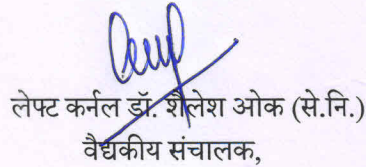 लेफ्ट कर्नल डॉ. शैलेश ओक (से.नि.)
वैद्यकीय संचालक,